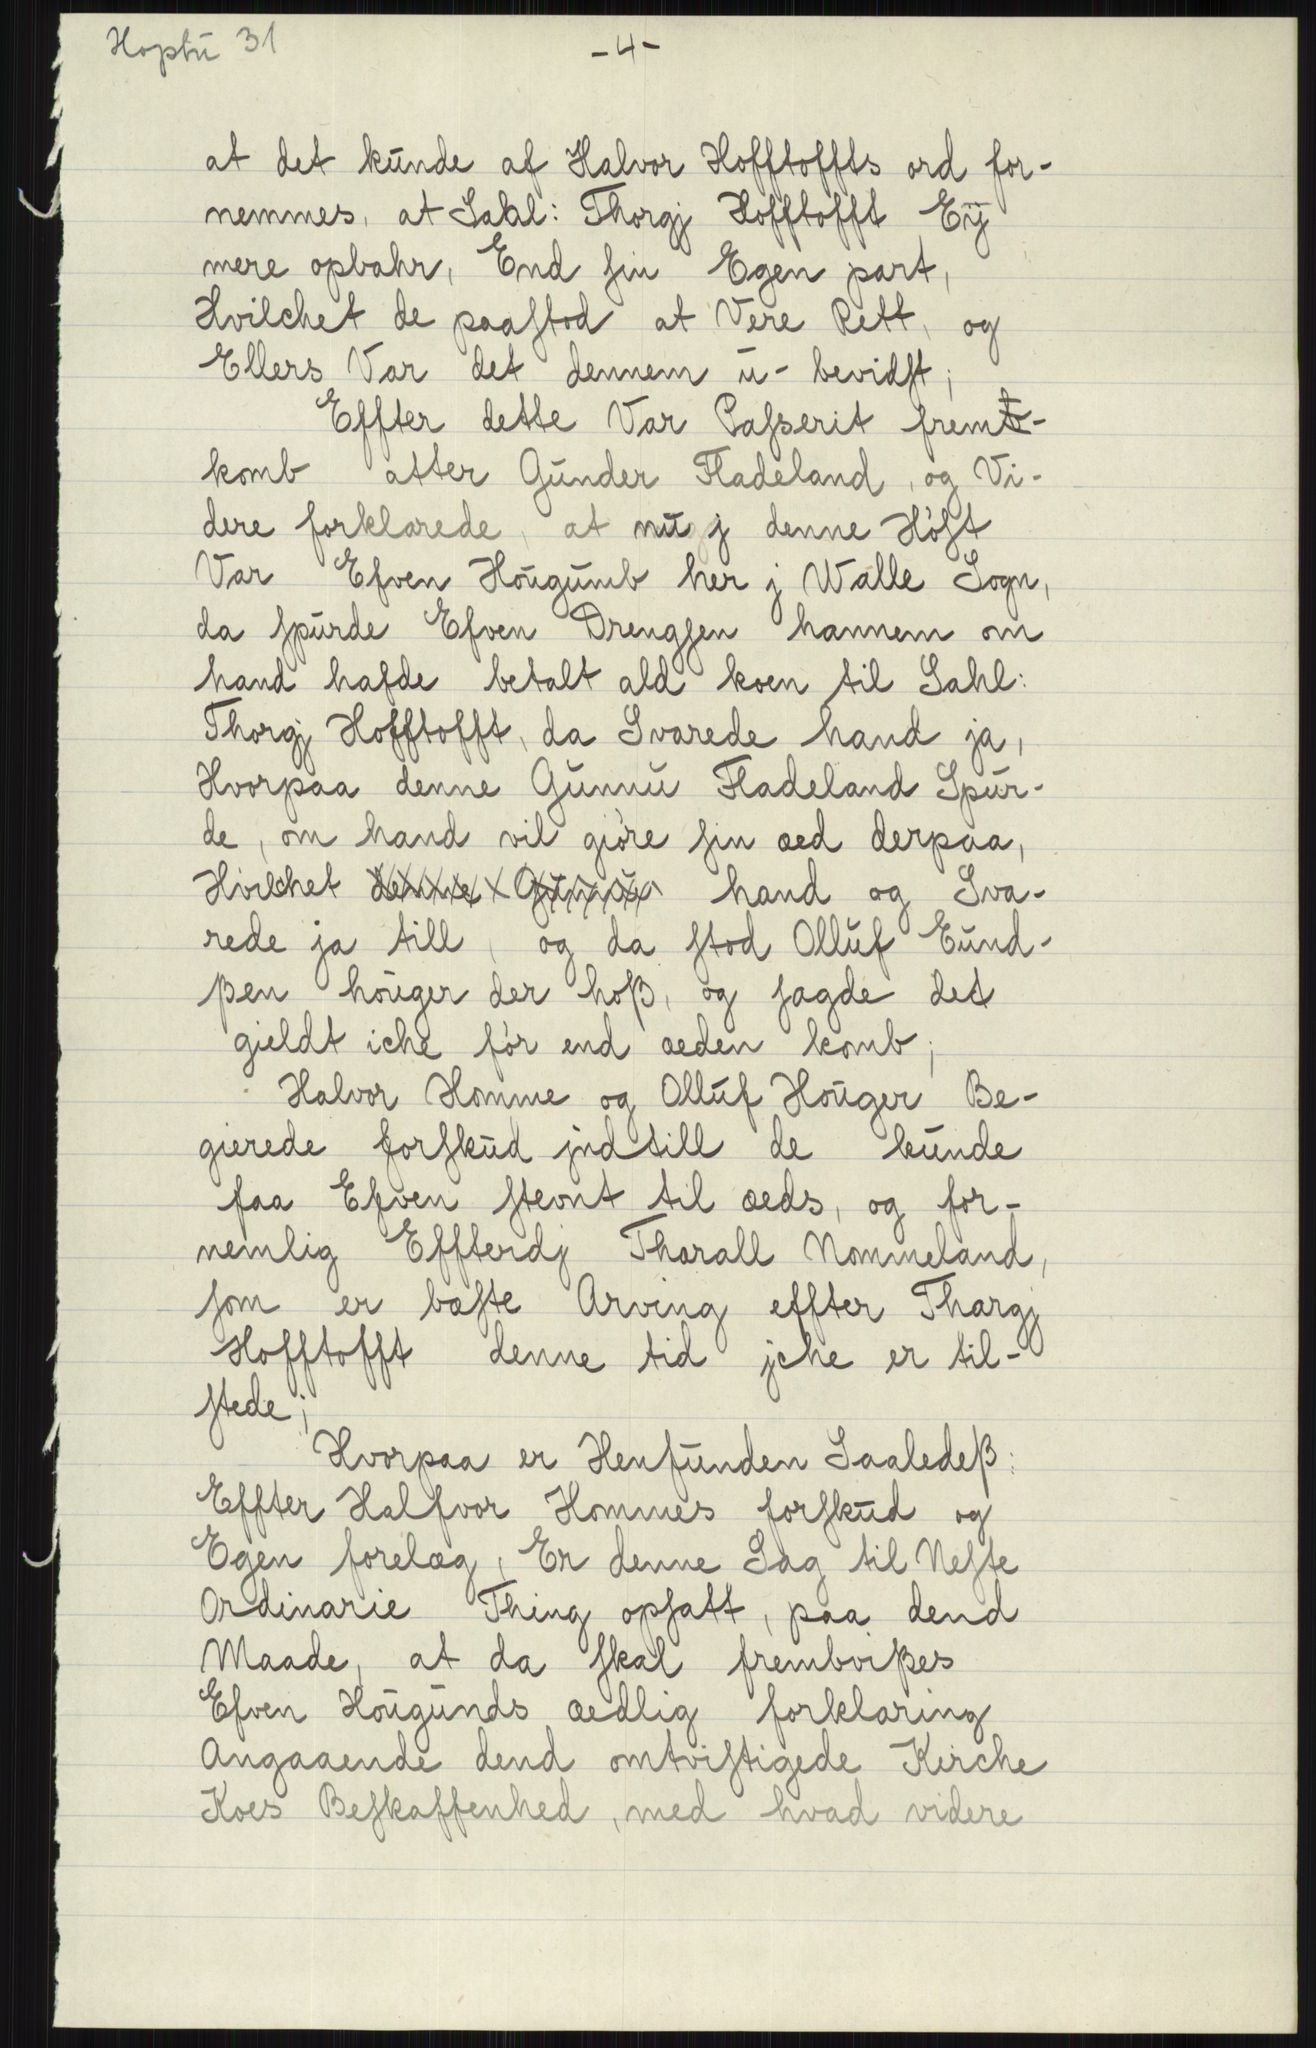 Hoptū 31
-4-
at det kūnde af Halvor Hofftoffts ord for-
nemmes, at Sahl: Thorgj Hofftofft Eÿ
mere opbahr, End sin Egen part,
Hvilchet de paastod at Vere Rett, og
Ellers Var det dennem ū-bevidst;
Effter dette Var Passerit fremb-
komb atter Gūnder Fladeland, og Vi-
dere forklarede, at nū j denne Høst
Var Efven Hoūgūmb her j Walle Sogn,
da spūrde Efven Drengsen hannem om
hand hafde betalt ald koen til Sahl:
Thorgj Hofftofft, da Svarede hand ja,
Hvorpaa denne Gūnnū Fladeland Spūr-
de, om hand vil giøre sin æd derpaa,
Hvilchet denne Gūnnū hand og Sva-
rede ja till, og da stod Ollūf Eūnd-
ßen hoūger der hoß, og sagde det
gieldt iche før end æden komb;
Halvor Homme og Ollūf Hoūger Be-
gierede forskūd jndtill de kūnde
faa Efven stevnt til æds, og for-
nemlig Effterdj Tharall Nommeland,
som er bæste Arving effter Thargj
Hofftofft denne tid jche er til-
stede;
Hvorpaa er Henfūnden Saaledeß:
Effter Halfvor Hommes forskūd og
Egen forelæg, Er denne Sag til Neste
Ordinarie Thing opsatt, paa dend
Maade, at da skal frembvißes
Efven Hoūgūnds ædlig forklaring
Angaaende dend omtvistigede Kirche
Koes Beskaffenhed, med hvad videre